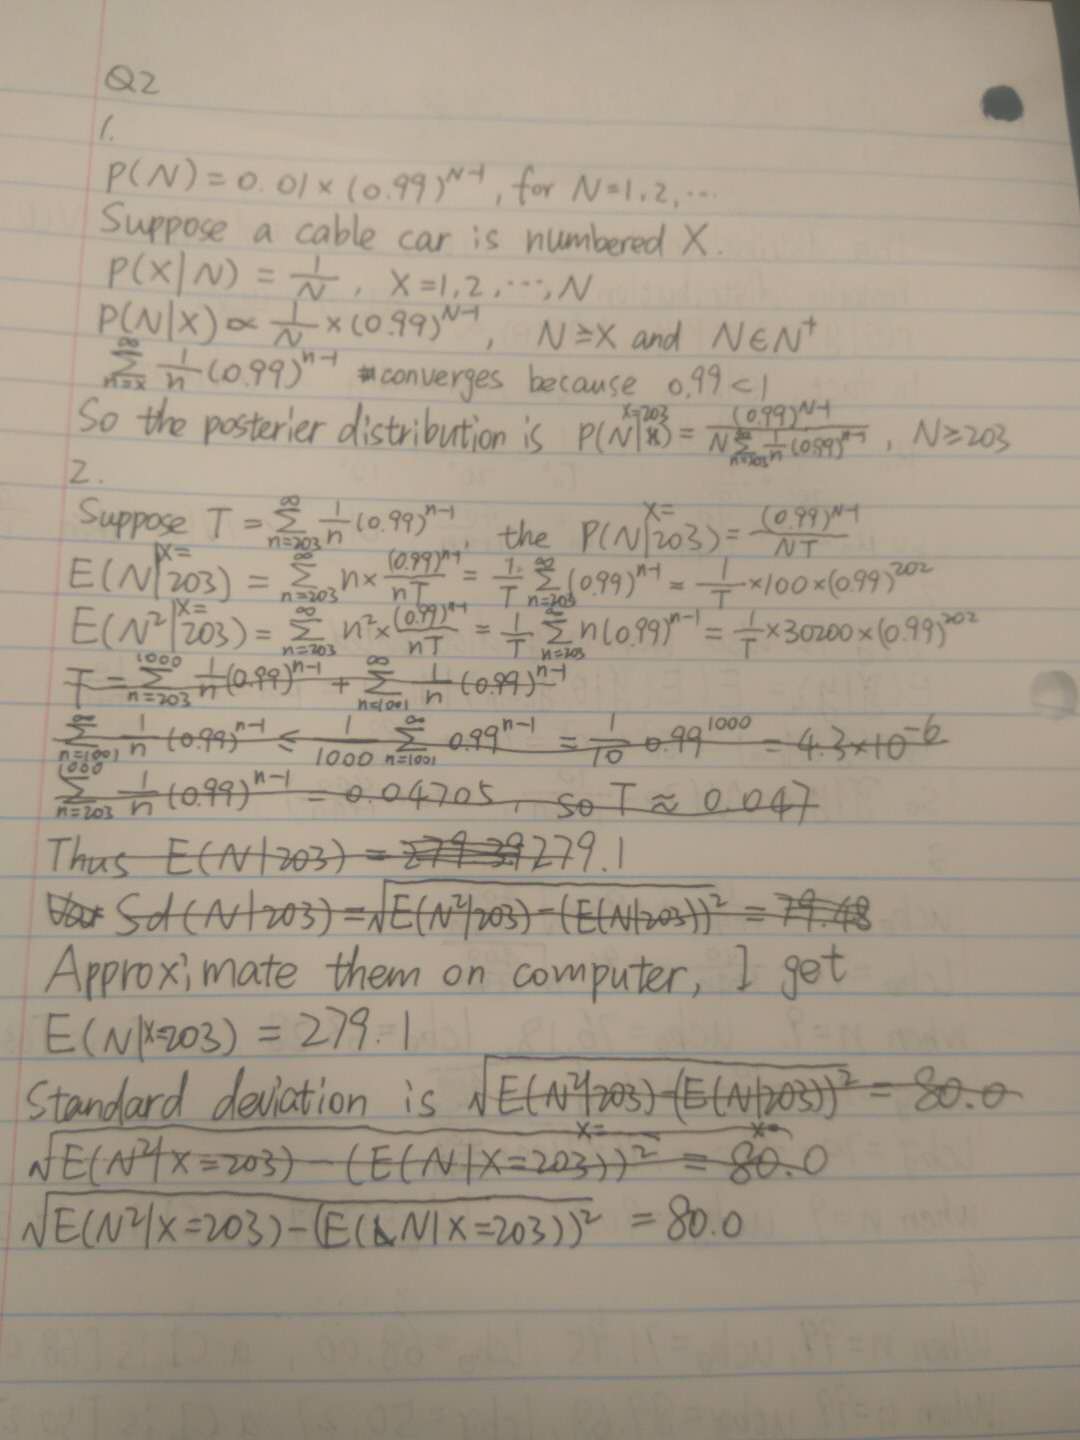 Q2
1.
P(N) = 0.01 × (0.99)^{N-1}, for N=1,2,...
Suppose a cable car is numbered X.
P(X|N) = 1/N, X=1,2,...,N
P(N|X) ∝ 1/N × (0.99)^{N-1}, N≥X and N∈N^+
∑_{n=x}^{∞} 1/n (0.99)^{n-1} converges because 0.99<1
So the posterier distribution is P(N|X=203) = (0.99)^{N-1} / (N∑_{n=203}^{∞} 1/n (0.99)^{n-1}), N≥203
2.
Suppose T = ∑_{n=203}^{∞} 1/n (0.99)^{n-1}, the P(N|X=203) = (0.99)^{N-1}/(NT)
E(N|X=203) = ∑_{n=203}^{∞} n× (0.99)^{n-1}/(nT) = 1/T ∑_{n=203}^{∞} (0.99)^{n-1} = 1/T ×100×(0.99)^{202}
E(N²|X=203) = ∑_{n=203}^{∞} n²× (0.99)^{n-1}/(nT) = 1/T ∑_{n=203}^{∞} n(0.99)^{n-1} = 1/T ×30200×(0.99)^{202}
T = ∑_{n=203}^{1000} 1/n (0.99)^{n-1} + ∑_{n=1001}^{∞} 1/n (0.99)^{n-1}
∑_{n=1001}^{∞} 1/n (0.99)^{n-1} ≤ 1/1000 ∑_{n=1001}^{∞} 0.99^{n-1} = 1/10 0.99^{1000} = 4.3×10^{-6}
∑_{n=203}^{1000} 1/n (0.99)^{n-1} = 0.04705, so T ≈ 0.047
Thus E(N|203) = 279.1
Sd(N|203) = √(E(N²|203) - (E(N|203))²) = 79.48
Approximate them on computer, I get
E(N|X=203) = 279.1
Standard deviation is √(E(N²|203) - (E(N|203))²) = 80.0
√(E(N²|X=203) - (E(N|X=203))²) = 80.0
√(E(N²|X=203) - (E(N|X=203))²) = 80.0